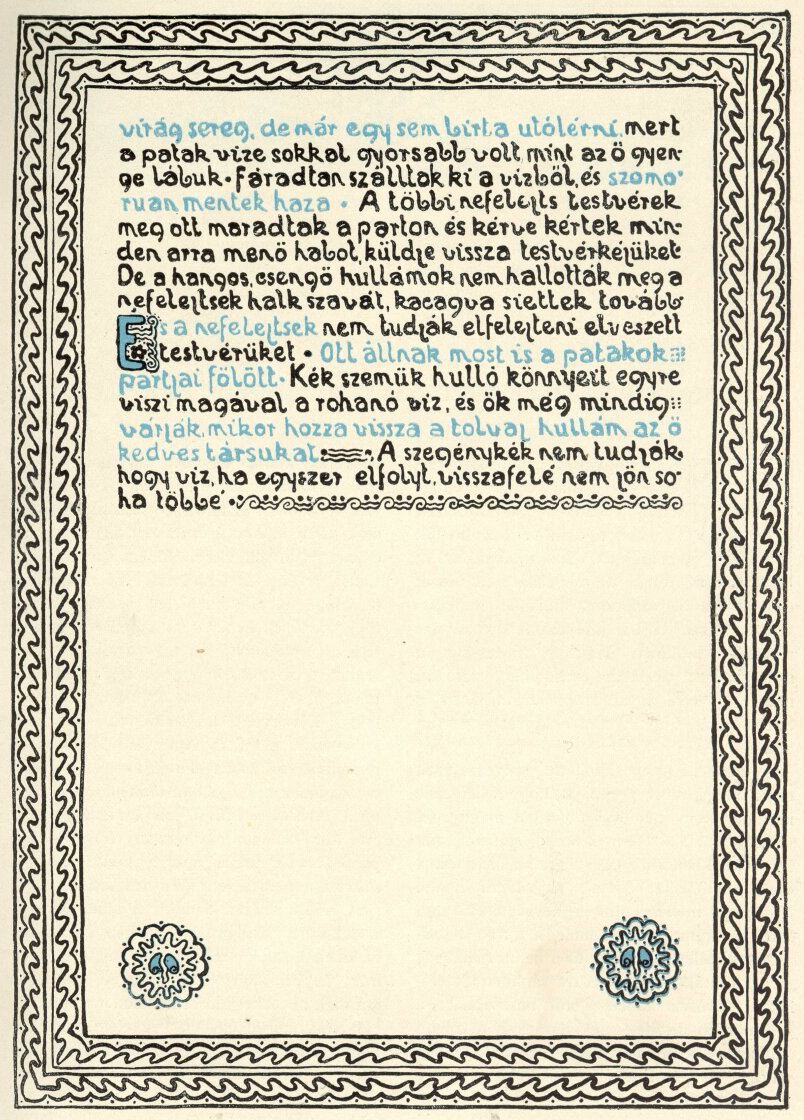 virág sereg, de már egy sem birta utólérni, mert
a patak vize sokkal gyorsabb volt, mint az ő gyen-
ge lábuk • Fáradtan szálltak ki a vizből, és szomo-
ruan mentek haza • A többi nefelejts testvérek
meg ott maradtak a parton és kérve kértek min-
den arra menő habot, küldje vissza testvérkéjüket
De a hangos, csengő hullámok nem hallották meg a
nefelejtsek halk szavát, kacagva siettek tovább
És a nefelejtsek nem tudják elfelejteni elveszett
testvérüket • Ott állnak most is a patakok
partjai fölött • Kék szemük hulló könnyeit egyre
viszi magával a rohanó viz, és ők még mindig
várják, mikor hozza vissza a tolvaj hullám az ő
kedves társukat. A szegénykék nem tudják,
hogy viz, ha egyszer elfolyt, visszafelé nem jön so-
ha többé •